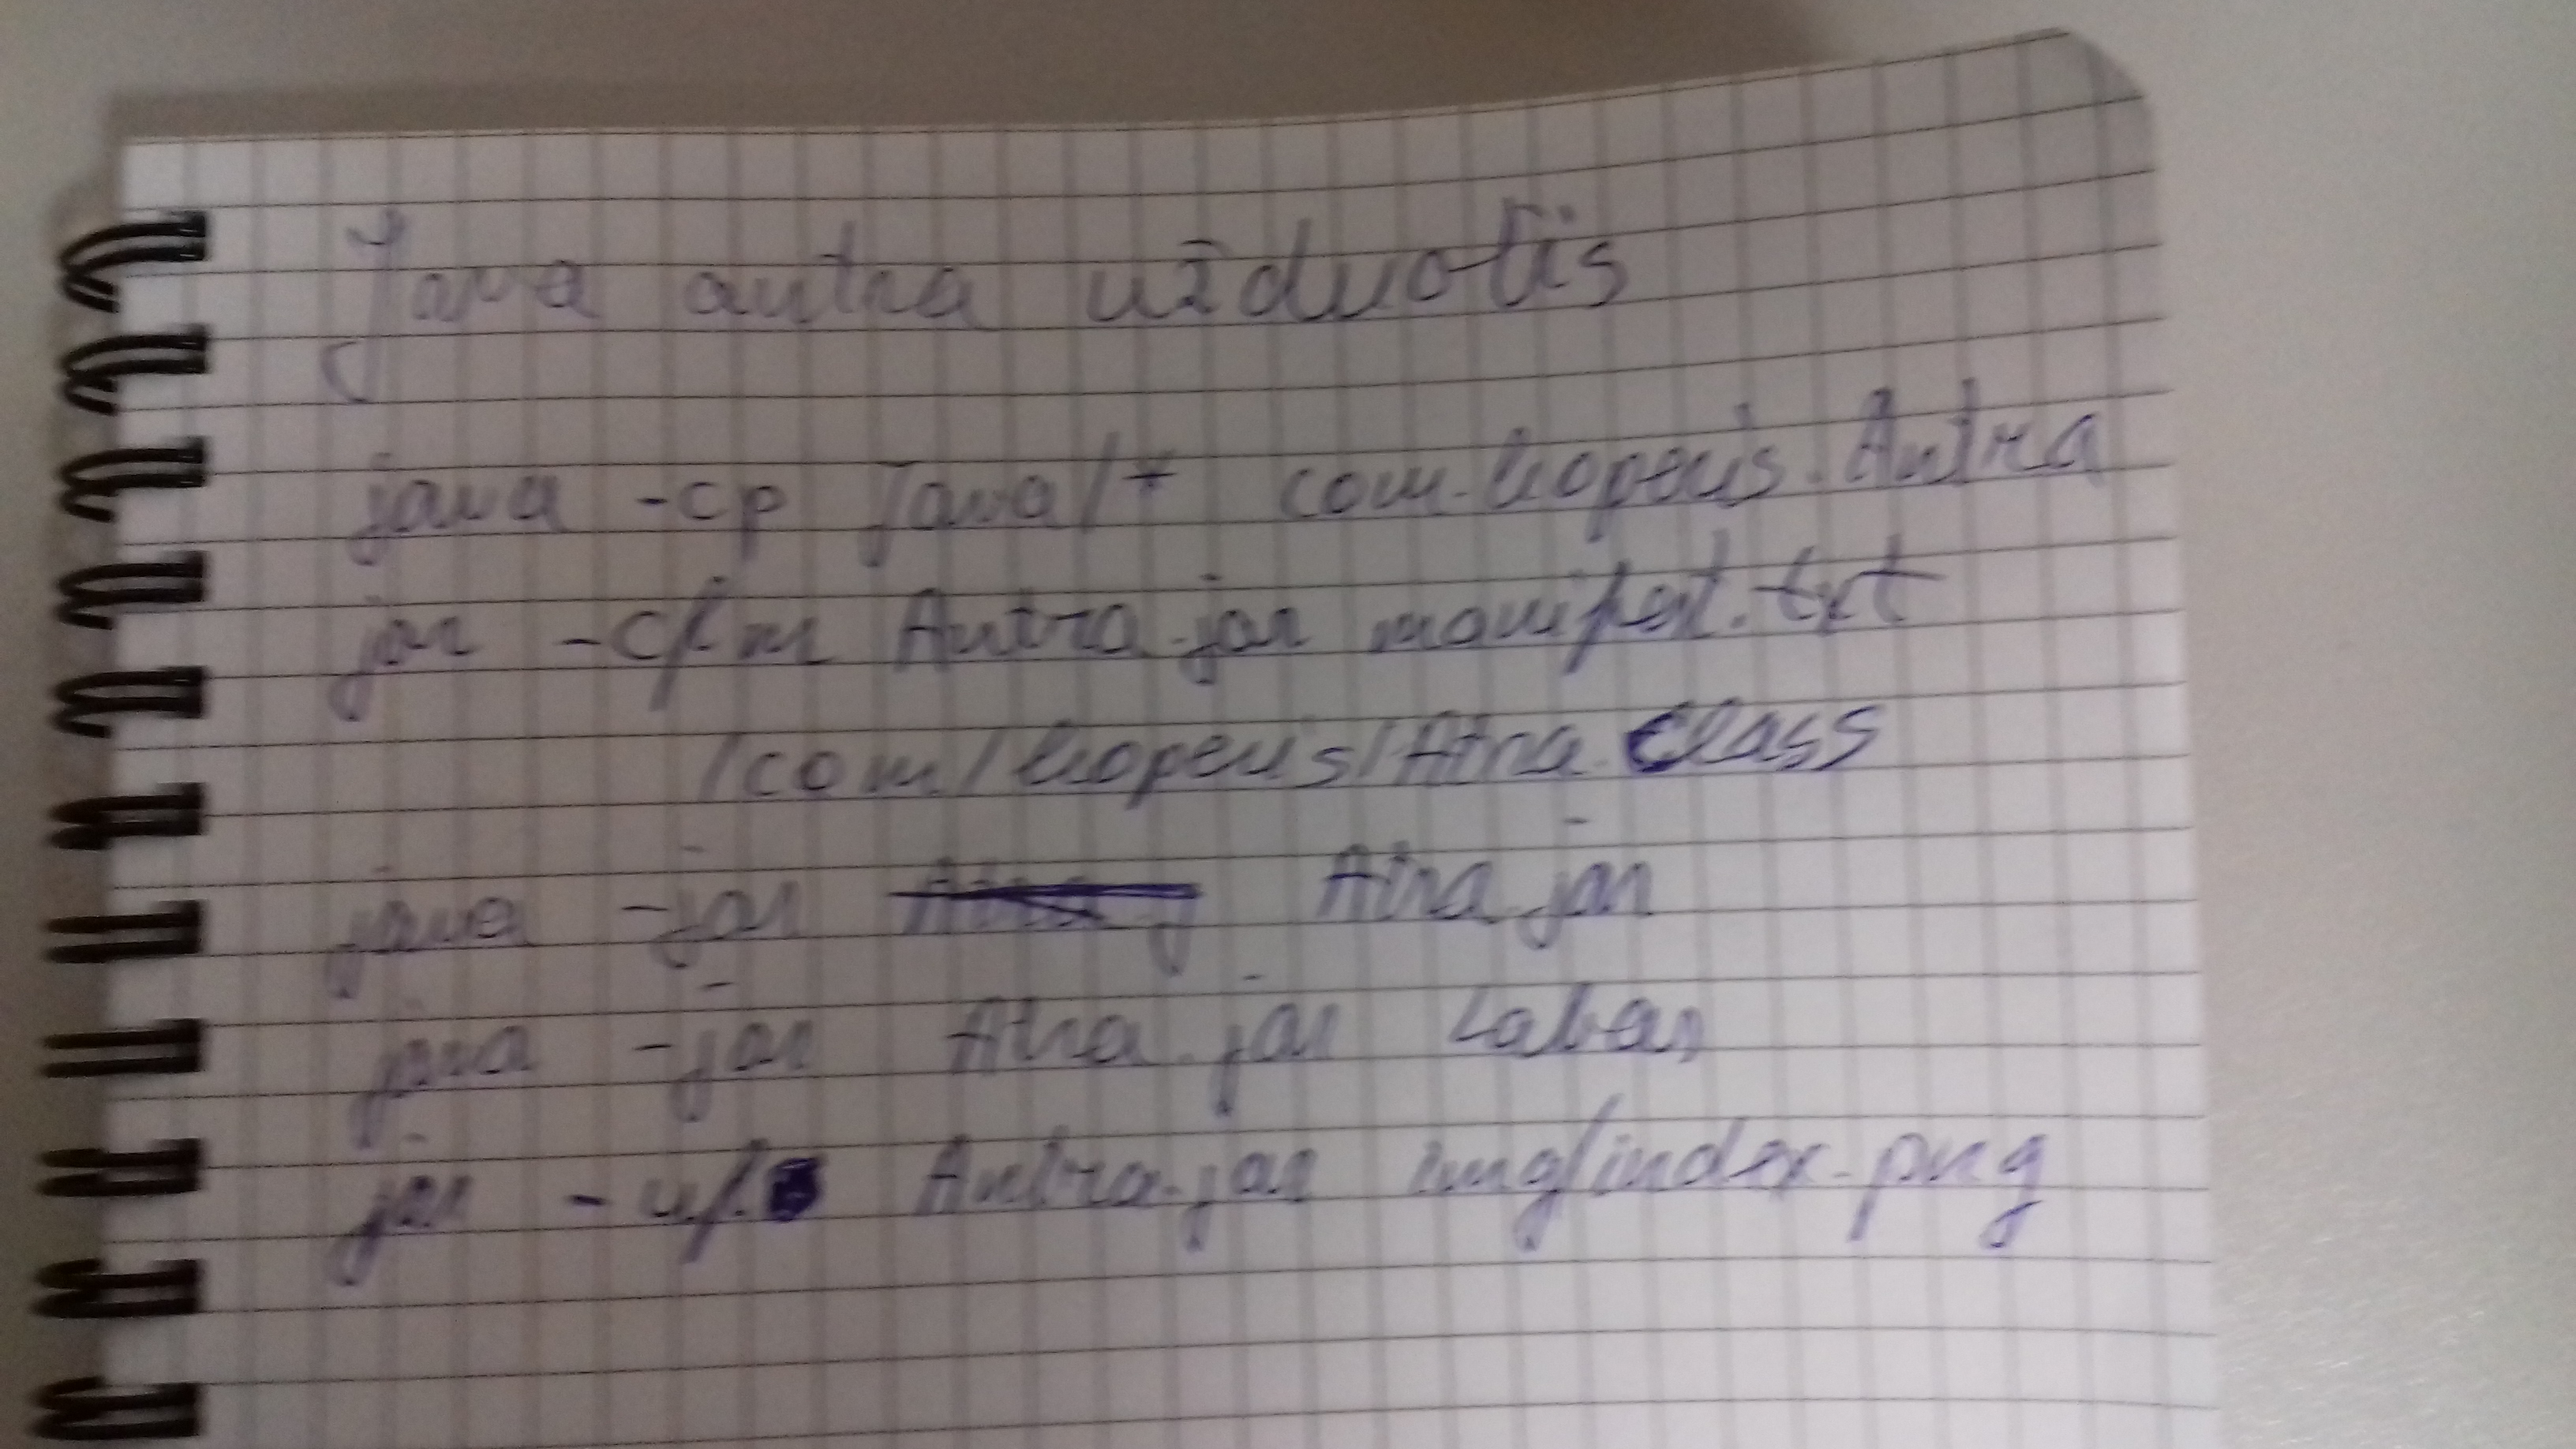 Java antra užduotis
java -cp Java/* com.koperis.Antra
jar -cfm Antra.jar manifest.txt
/com/koperis/Atra.Class
java -jar Atra.jar
java -jar Atra.jar Labas
jar -uf Antra.jar img/index.png